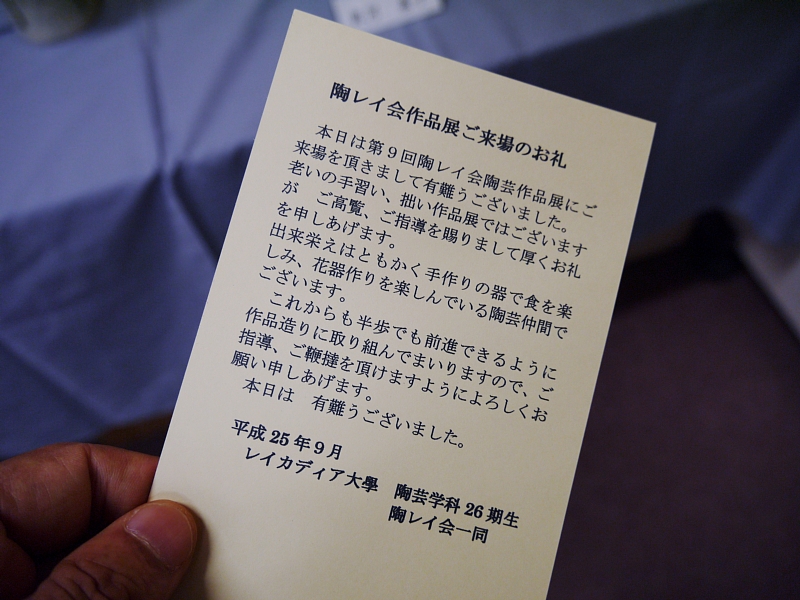 陶レイ会作品展ご来場のお礼
本日は第9回陶レイ会陶芸作品展にご
来場を頂きまして有難うございました。
老いの手習い、拙い作品展ではございます
が　ご高覧、ご指導を賜りまして厚くお礼
を申しあげます。
出来栄えはともかく手作りの器で食を楽
しみ、花器作りを楽しんでいる陶芸仲間で
ございます。
これからも半歩でも前進できるように
作品造りに取り組んでまいりますので、ご
指導、ご鞭撻を頂けますようによろしくお
願い申しあげます。
本日は　有難うございました。
平成25年9月
レイカディア大學　陶芸学科26期生
陶レイ会一同